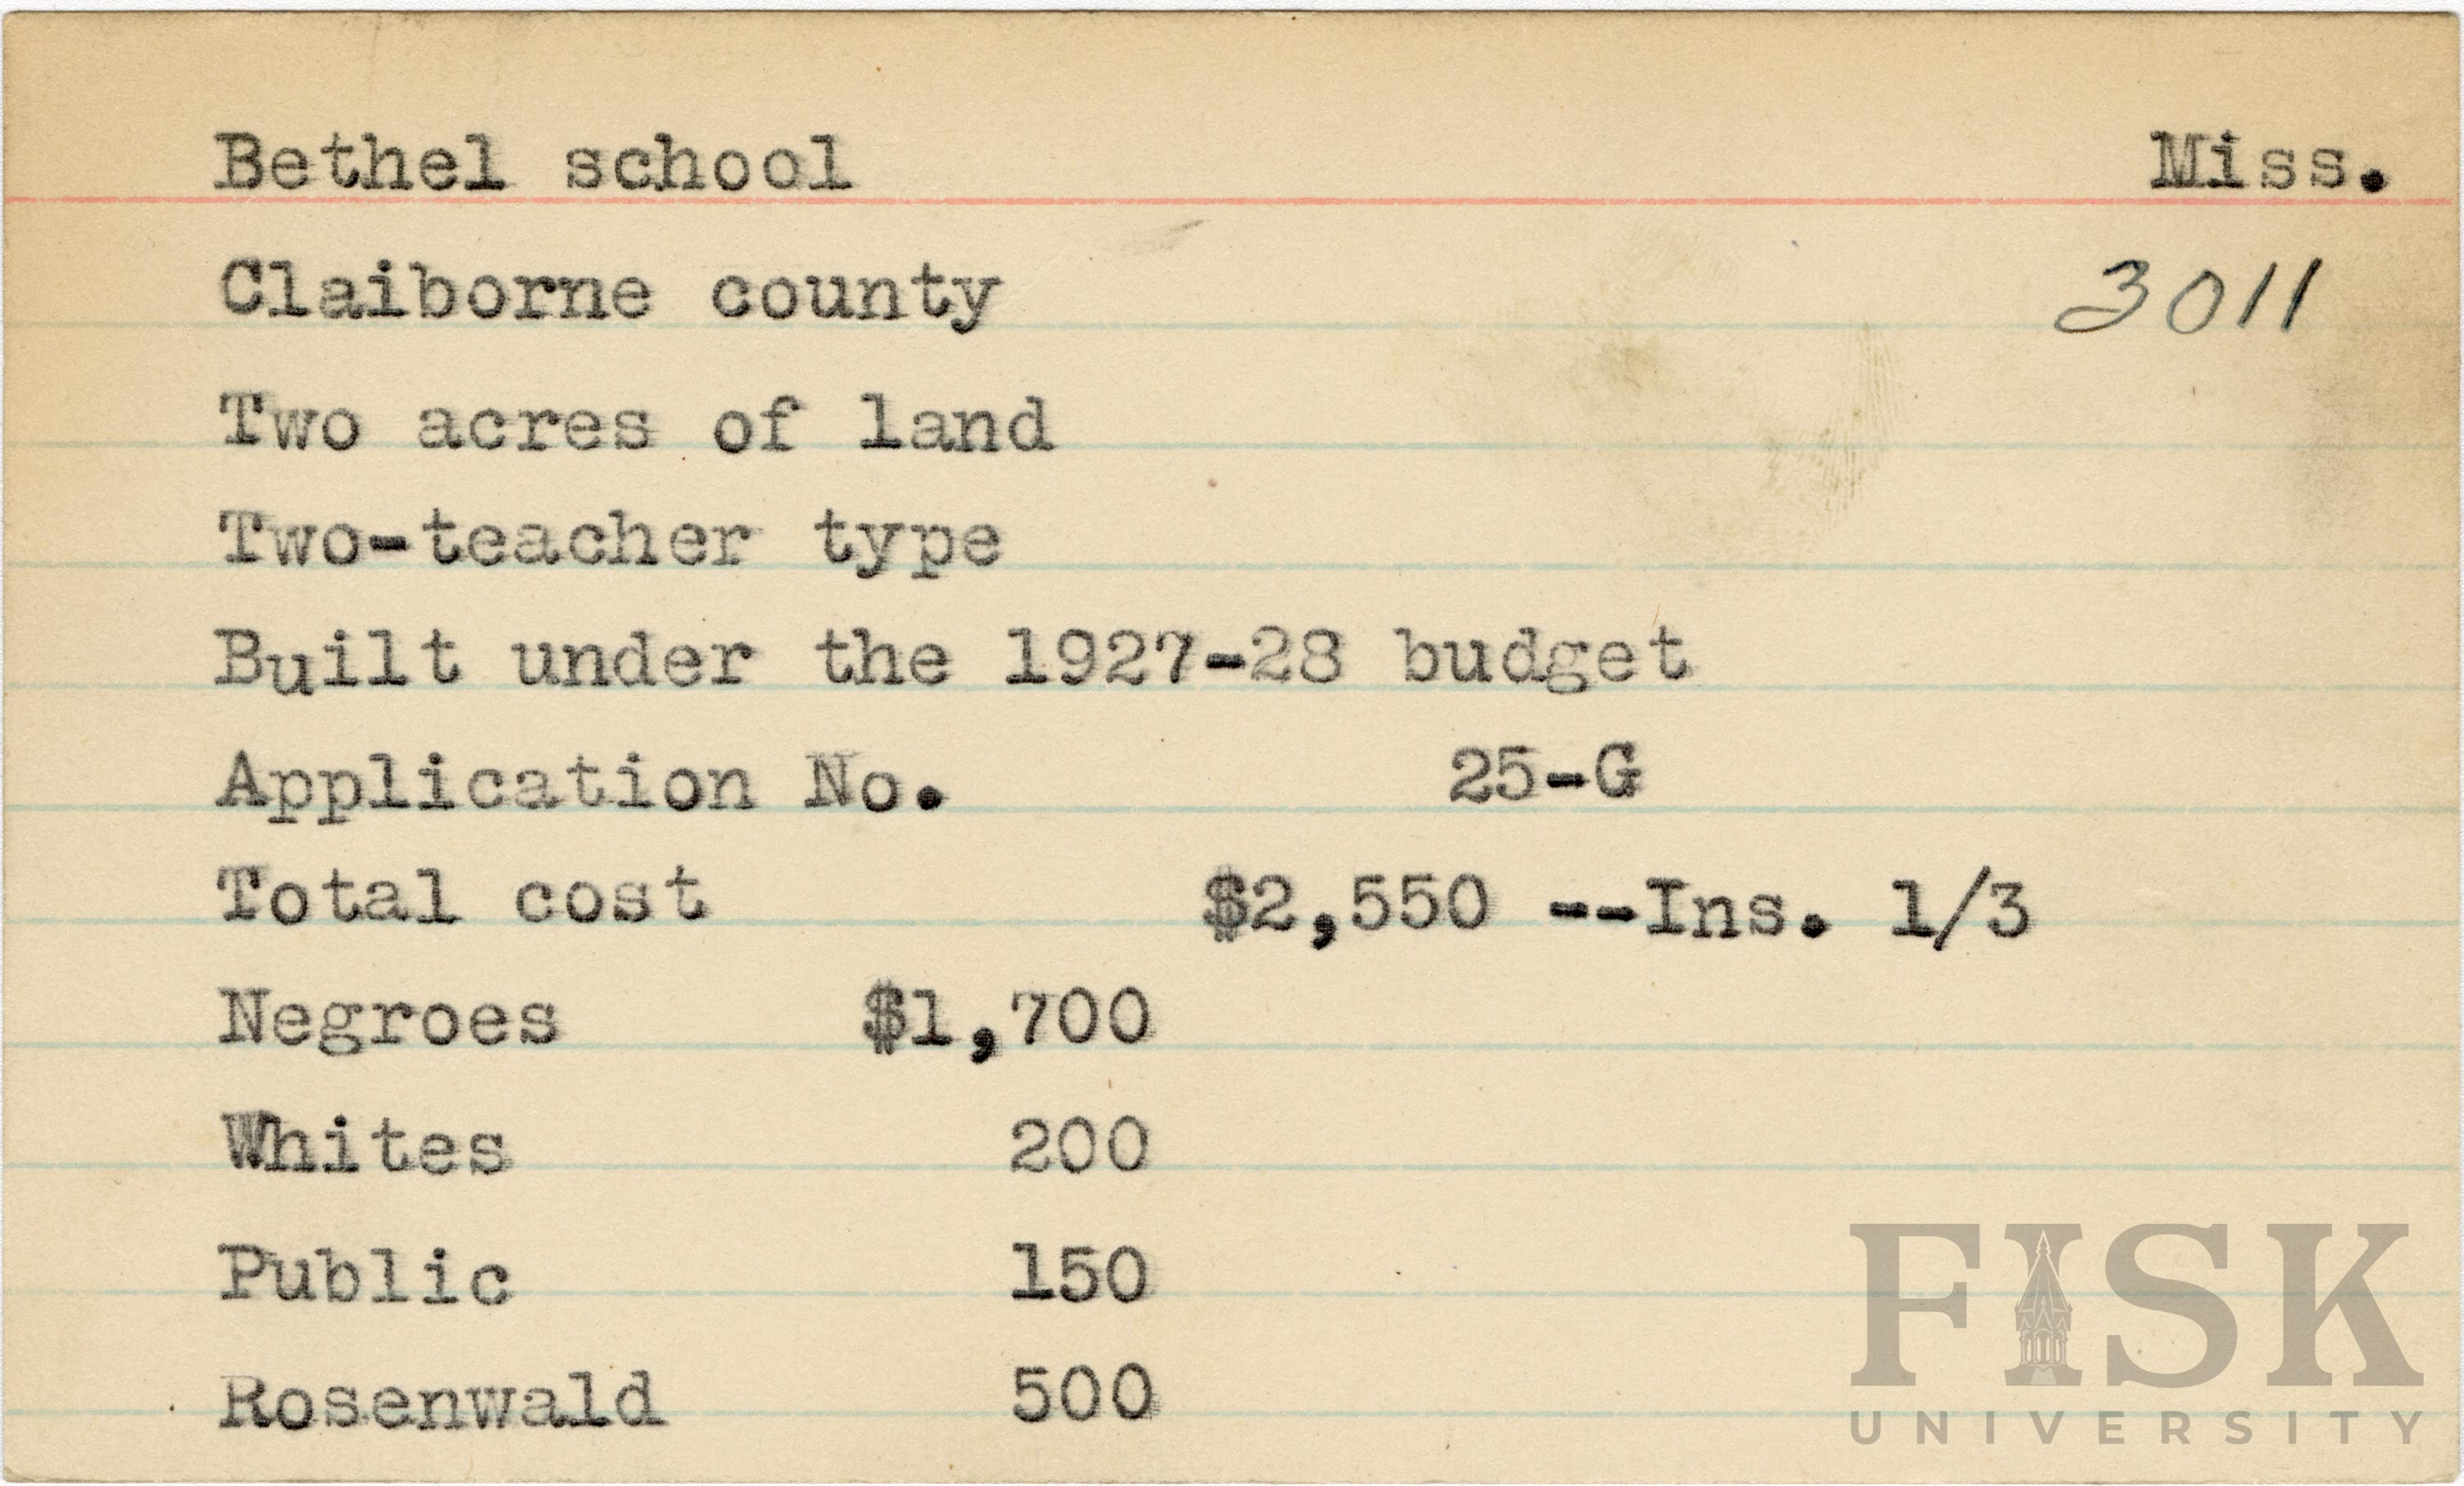 Bethel school Miss.
Claiborne county 3011
Two acres of land
Two-teacher type
Built under the 1927-28 budget
Application No. 25-G
Total cost $2,550 --Ins. 1/3
Negroes $1,700
Whites 200
Public 150
Rosenwald 500
FISK
UNIVERSITY